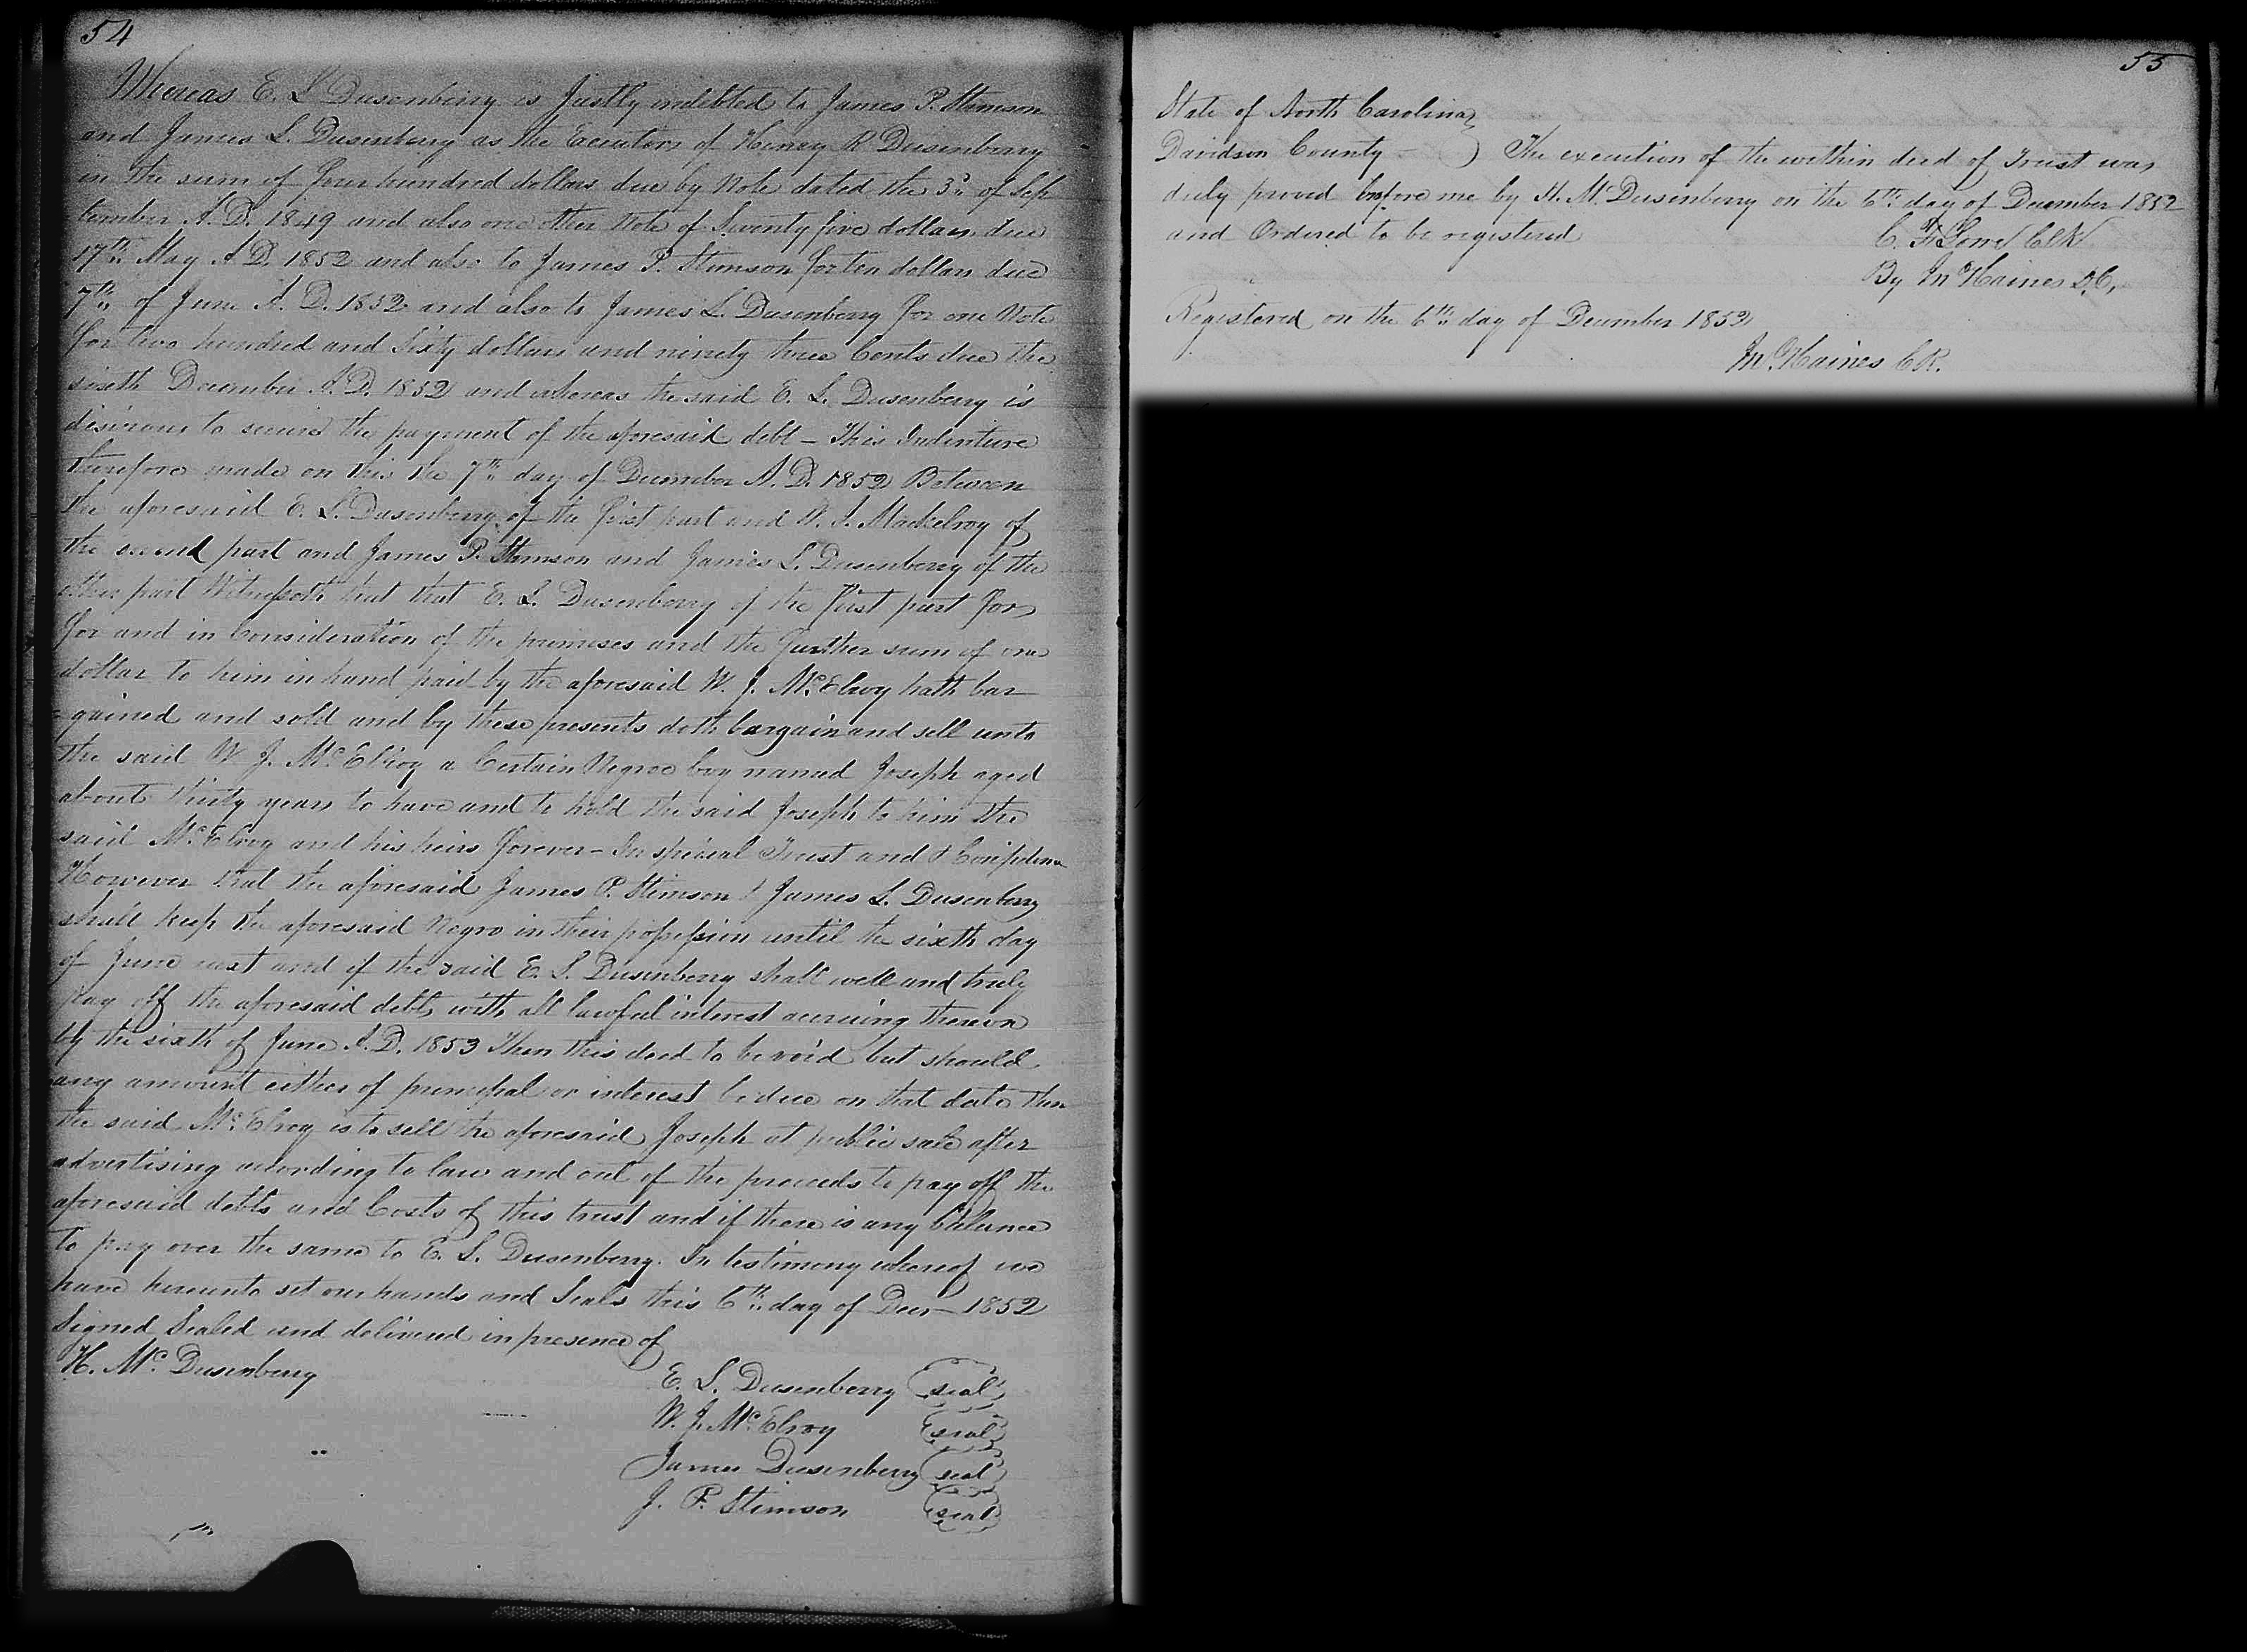 54
Whereas E. L Dusenberry is Justly indebted to James P. Stimson
and James L. Dusenberry as the Executors of Henry R Dusenberry
in the sum of four hundred dollars due by Note dated the 3d of Sep
tember A. D. 1849 and also one other Note of Seventy five dollars due
17th May A. D. 1852 and also to James P. Stimson for ten dollars due
7th of June A. D. 1852 and also to James L. Dusenberry for one Note
for two hundred and Sixty dollars and ninety three Cents due the
sixth December A. D. 1852 and whereas the said E. L. Dusenberry is
desirous to secure the payment of the aforesaid debt – This Indenture
therefore made on this the 7th day of December A. D. 1852 Between
the aforesaid E. L. Dusenberry of the first part and W. J. Mackelroy of
the second part and James P. Stimson and James L. Dusenberry of the
other part Witnesseth that that E. L. Dusenberry of the first part for
for and in Consideration of the premises and the further sum of one
dollar to him in hand paid by the aforesaid W. J. McElroy hath bar
gained and sold and by these presents doth bargain and sell unto
the said W. J. McElroy a Certain Negroe boy named Joseph aged
about thirty years to have and to hold the said Joseph to him the
said McElroy and his heirs forever – In special Trust and & Confidence
However that the aforesaid James P. Stimson & James L. Dusenberry
shall keep the aforesaid Negro in their possession until the sixth day
of June next and if the said E. L. Dusenberry shall well and truly
pay off the aforesaid debts with all lawful interest accruing thereon
by the sixth of June A. D. 1853 Then this deed to be void but should
any amount either of principal or interest be due on that date then
the said McElroy is to sell the aforesaid Joseph at public sale after
advertising according to law and out of the proceeds to pay off the
aforesaid debts and Costs of this trust and if there is any balance
to pay over the same to E. L. Dusenberry. In testimony whereof we
have hereunto set our hands and Seals this 6th day of Decr 1852
Signed Sealed and delivered in presence of
H. Mc. Dusenberry
E. L. Dusenberry seal
W. J. McElroy seal
James Dusenberry seal
J. P. Stimson seal
55
State of North Carolina
Davidson County – ) The execution of the within deed of Trust was
duly proved before me by H. Mc. Dusenberry on the 6th day of December 1852
and Ordered to be registered
C. F Lowe Clk
By M Haines D.C.
Registered on the 6th day of December 1852
M. Haines C R.